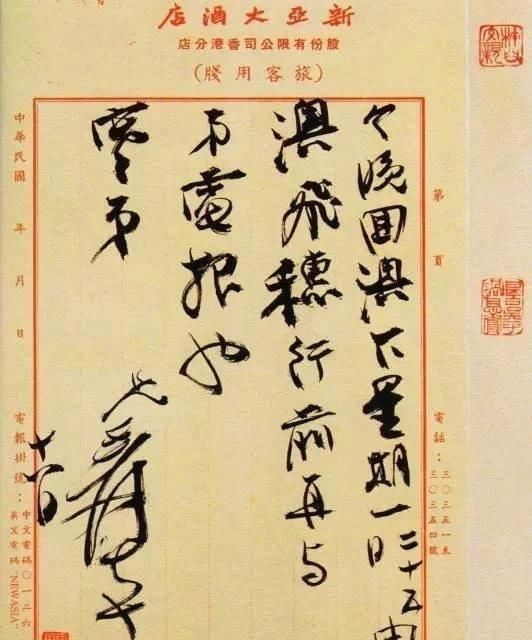 新亞大酒店
股份有限公司香港分店
(旅客用牋)
第 頁
電話：三〇三五一至
三〇三五四號
今晚回澳下星期一日二十五由
澳飛穗行前再与
弟電報也
弟
兄爰
十八日
中華民國 年 月 日
電報掛號：
中文電碼〇一二六
英文電碼"NEWASIA"